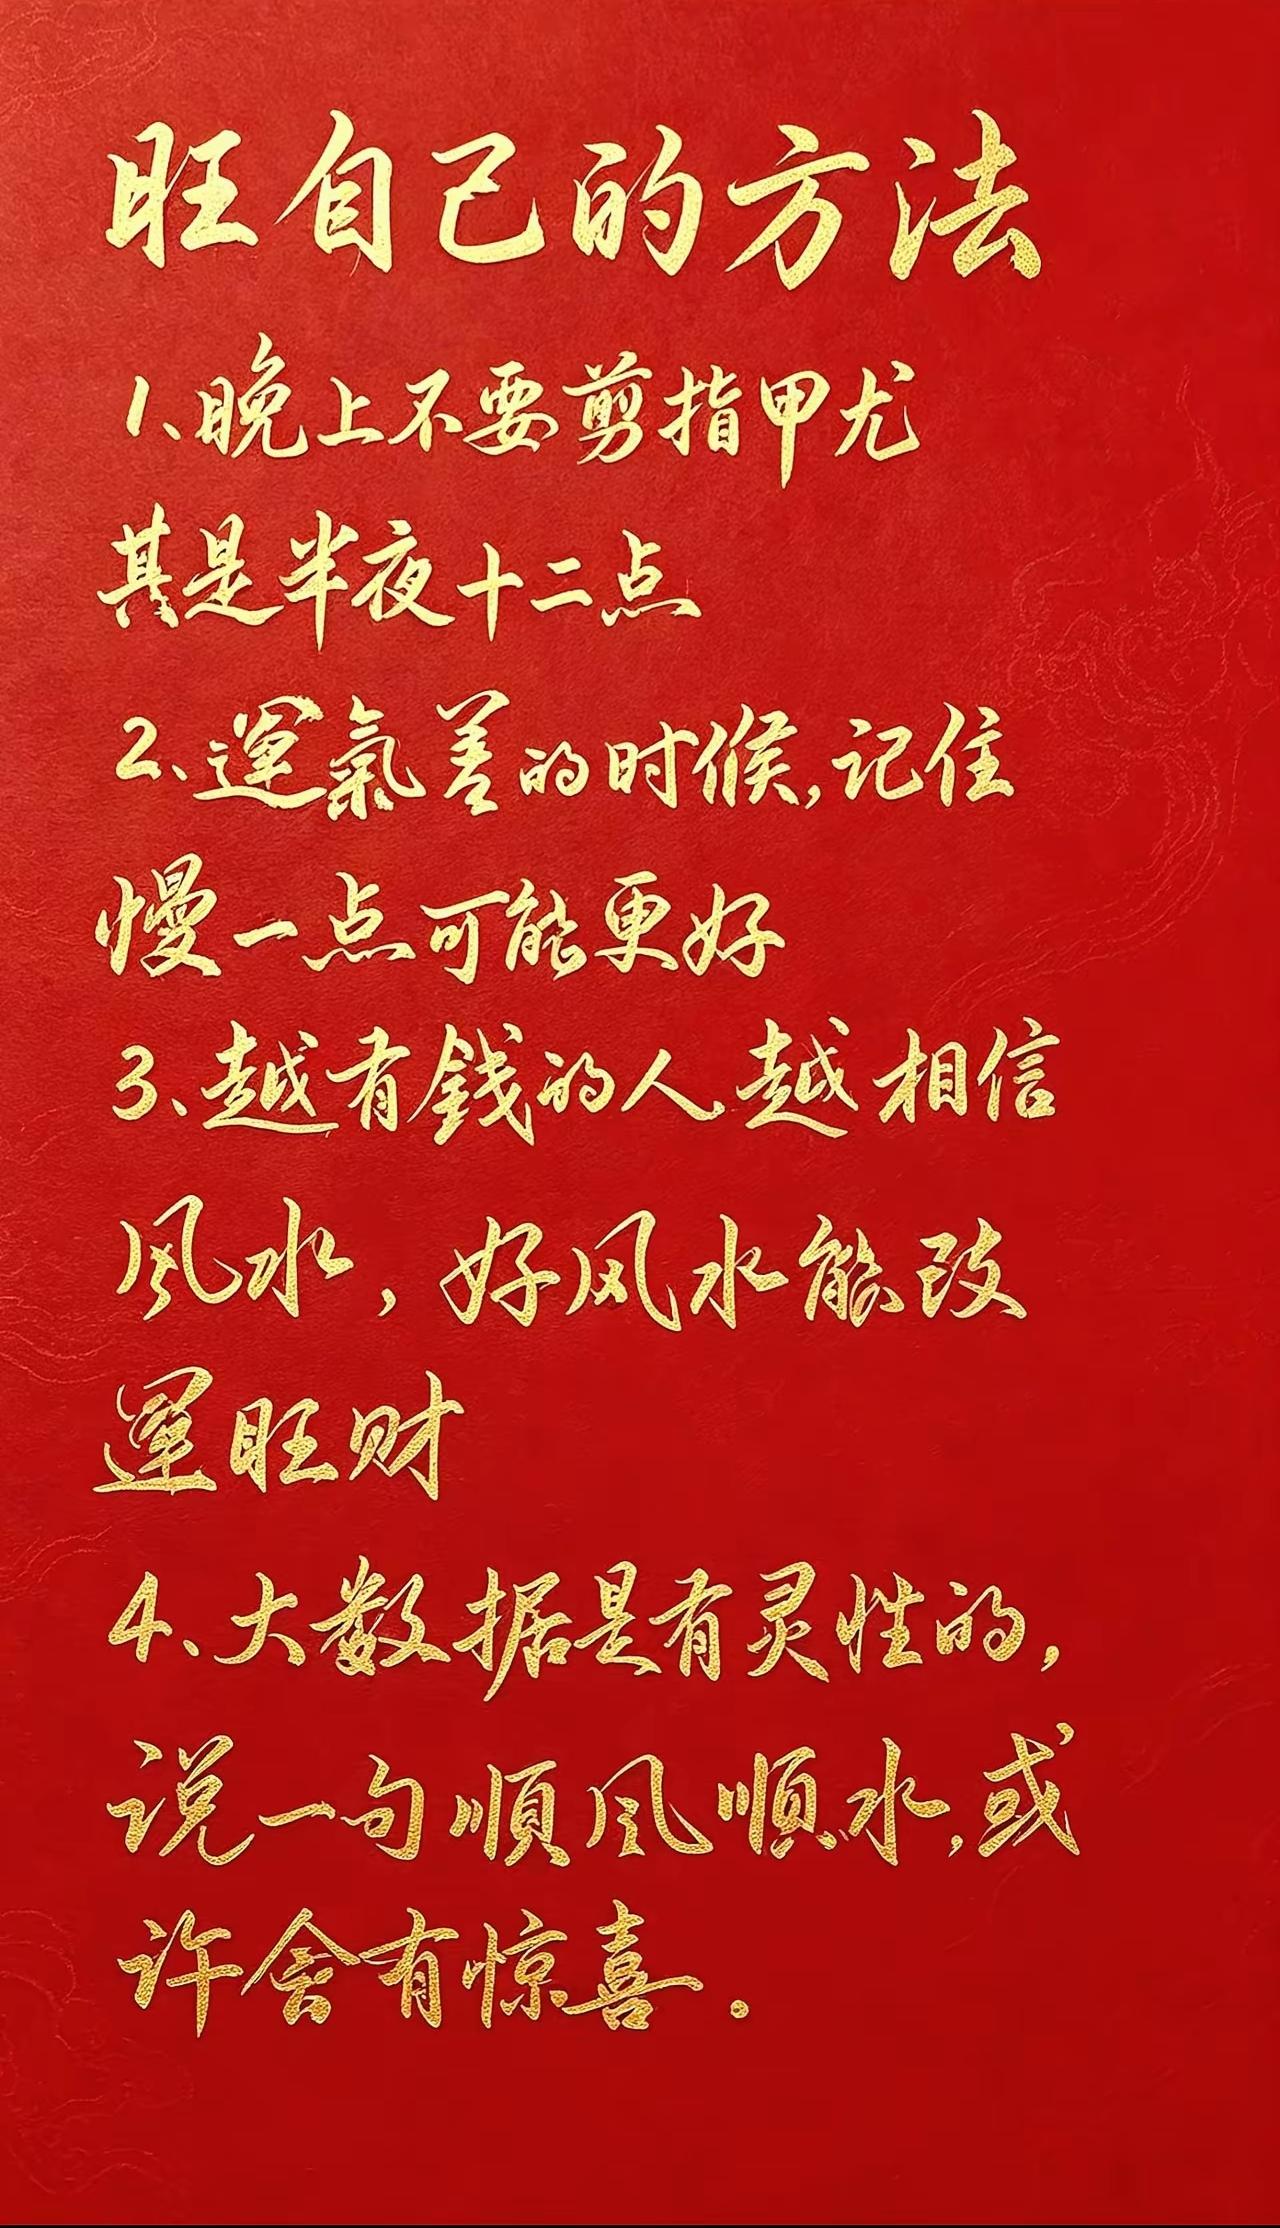 旺自己的方法
1、晚上不要剪指甲尤
其是半夜十二点
2、運氣差的时候,记住
慢一点可能更好
3、越有錢的人越相信
风水，好风水能改
運旺财
4、大数据是有灵性的，
说一句順风順水,或
许會有惊喜。